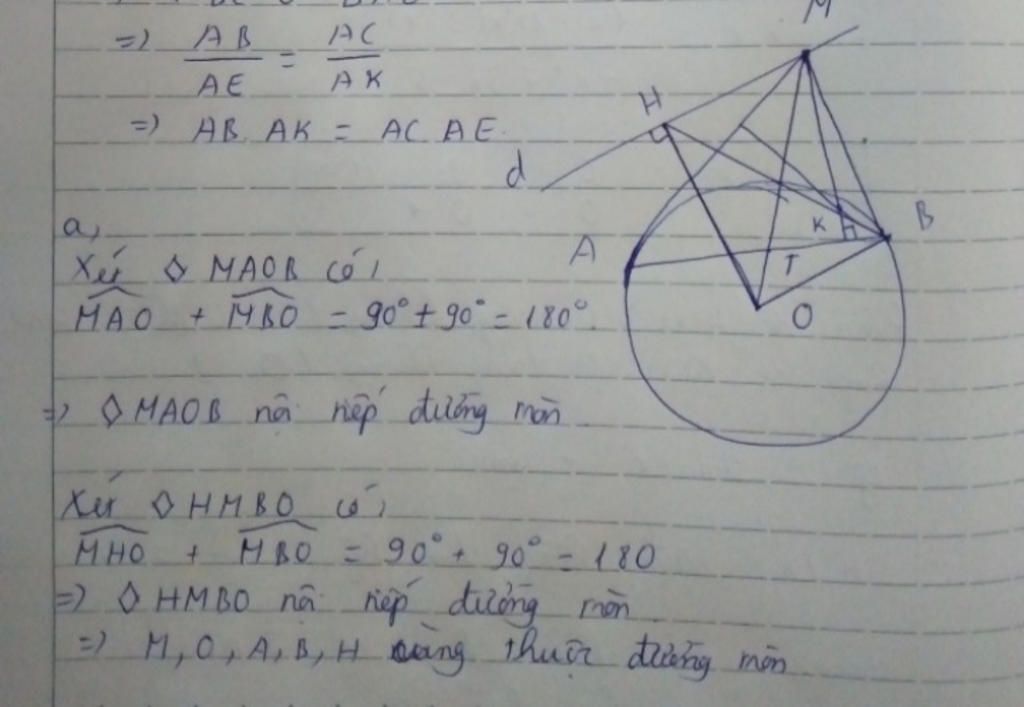 => AB/AE = AC/AK
=> AB. AK = AC. AE.
a,
Xét ◇ MAOB có,
MAO + MBO = 90° + 90° = 180°.
=> ◇ MAOB nội tiếp đường tròn
Xét ◇ HMBO có,
MHO + MBO = 90° + 90° = 180
=> ◇ HMBO nội tiếp đường tròn
=> M, O, A, B, H cùng thuộc đường tròn
M
H
d
A
K
B
I
O